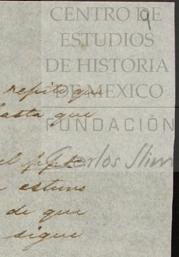 9
CENTRO DE
ESTUDIOS
DE HISTORIA
DE MEXICO
FUNDACIÓN
Carlos Slim
repito que
hasta que
el
estuvo
de que
sigue